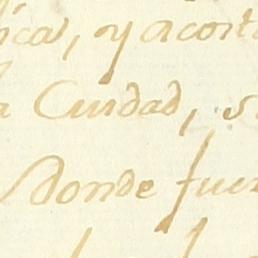 ica, y acort
a Cuidad, s
Donde fuer